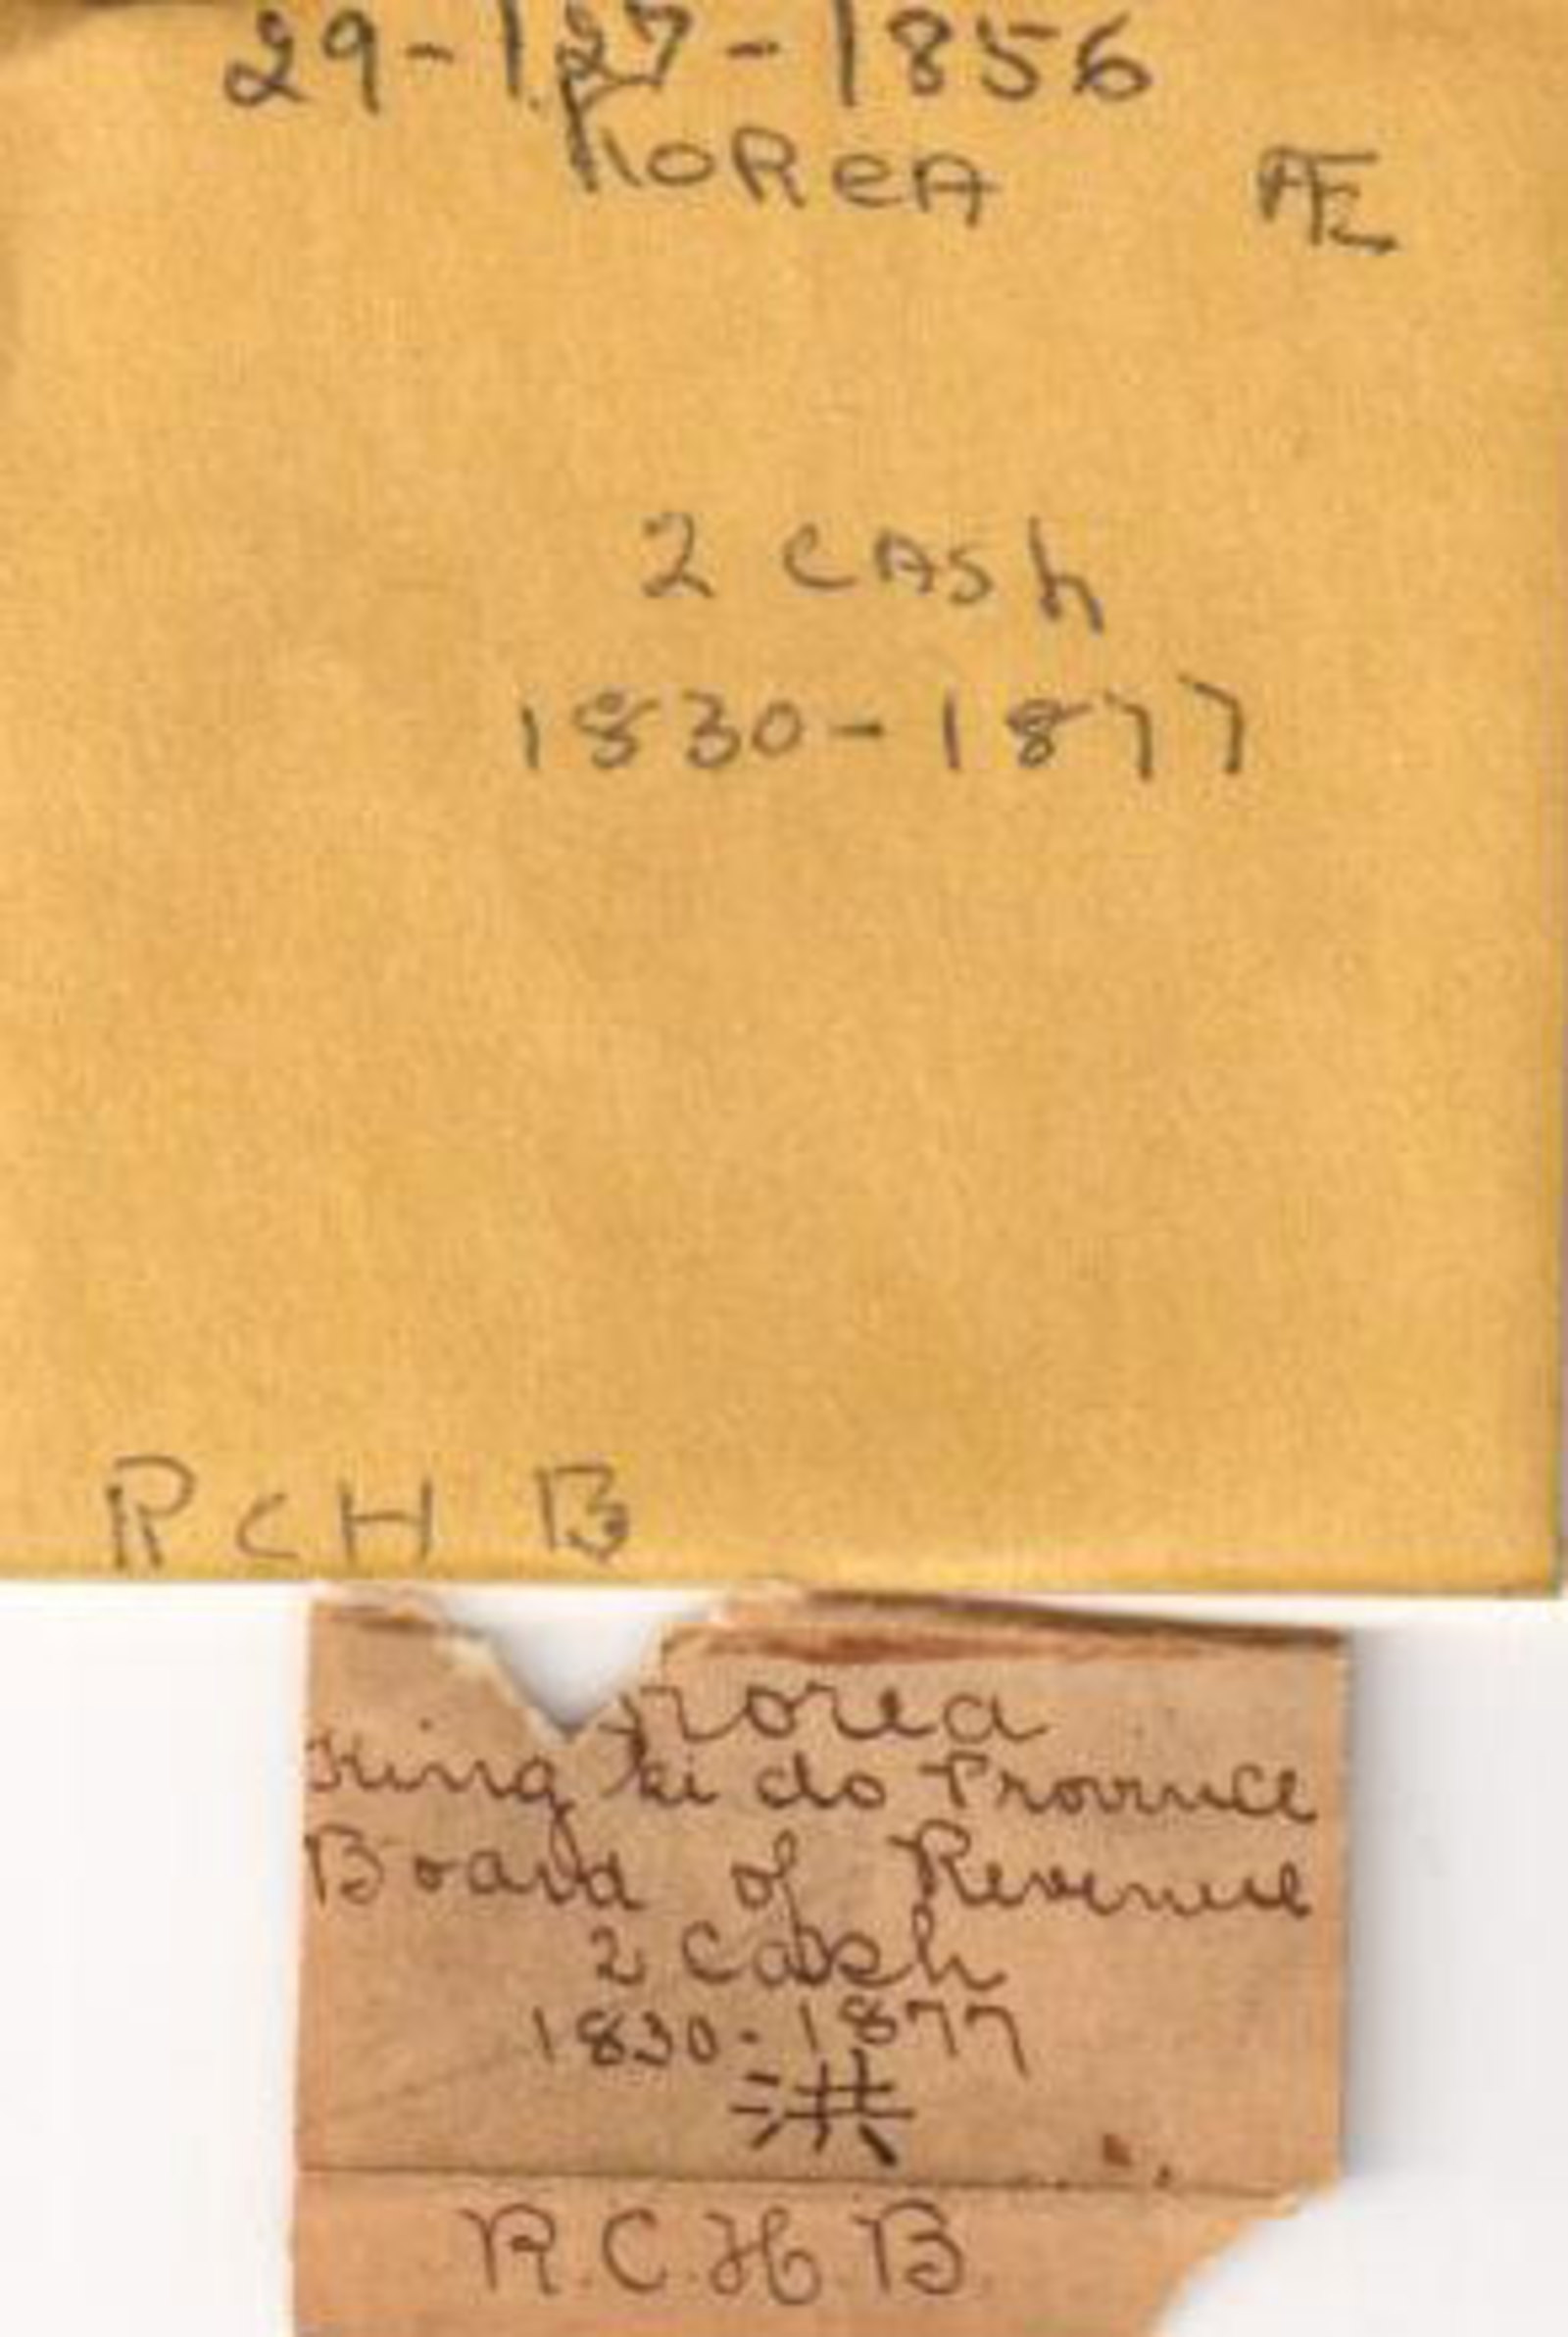 29-127-1856
KOREA Æ
2 CASh
1830-1877
R C H B
Korea
King ki do Province
Board of Revenue
2 Cash
1830-1877
洪
R.C.H.B.